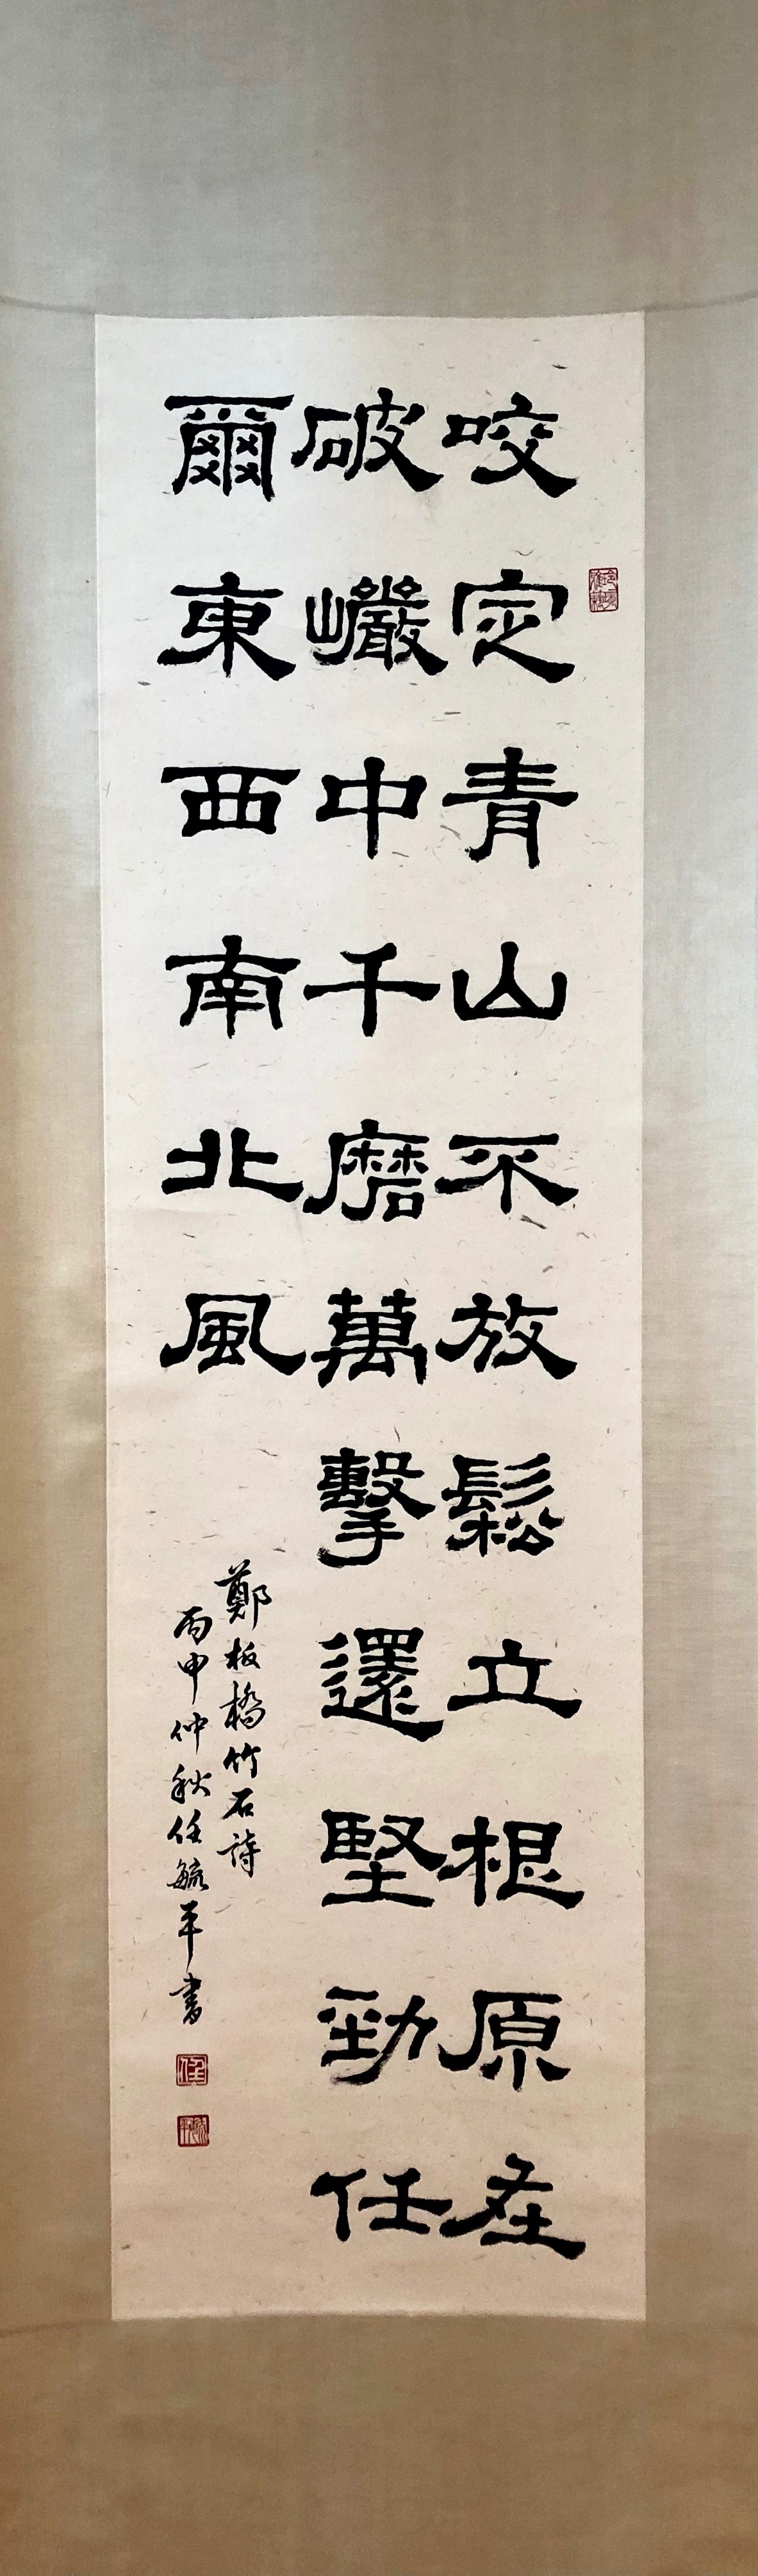 咬定青山不放鬆立根原在
破巖中千磨萬擊還堅勁任
爾東西南北風
鄭板橋竹石詩
丙申仲秋任毓平書